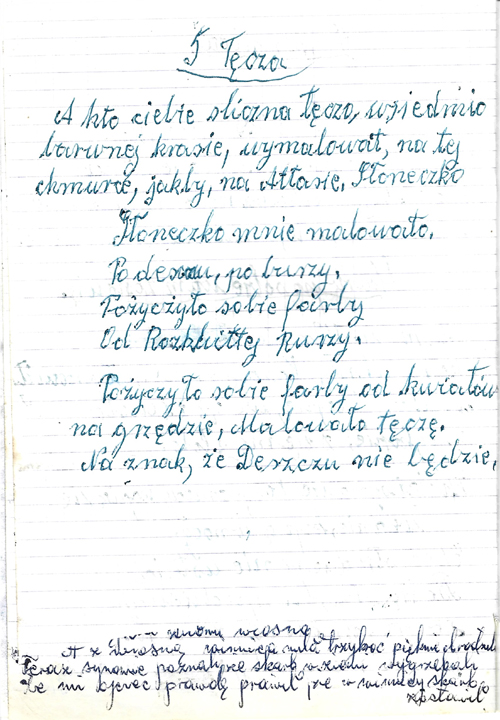 5 Tęcza
A kto ciebie śliczna tęczo, wsiedmio
barwnej krasie, wymalował, na tej
chmurce, jakby, na Atłasie. Słoneczko
Słoneczko mnie malowało.
Po deszczu, po burzy.
Pożyczyło sobie farby
Od Rozkwittej Ruszy.
Pożyczyło sobie farby od kwiatów
na grzędzie, Malowało tęczę.
Na znak, że Deszczu nie będzie,
wiosną
A z wiosną winnica
Teraz synowie poznali że skarb
że im ojciec prawdę prawił że w winnicy skarb
zostawił